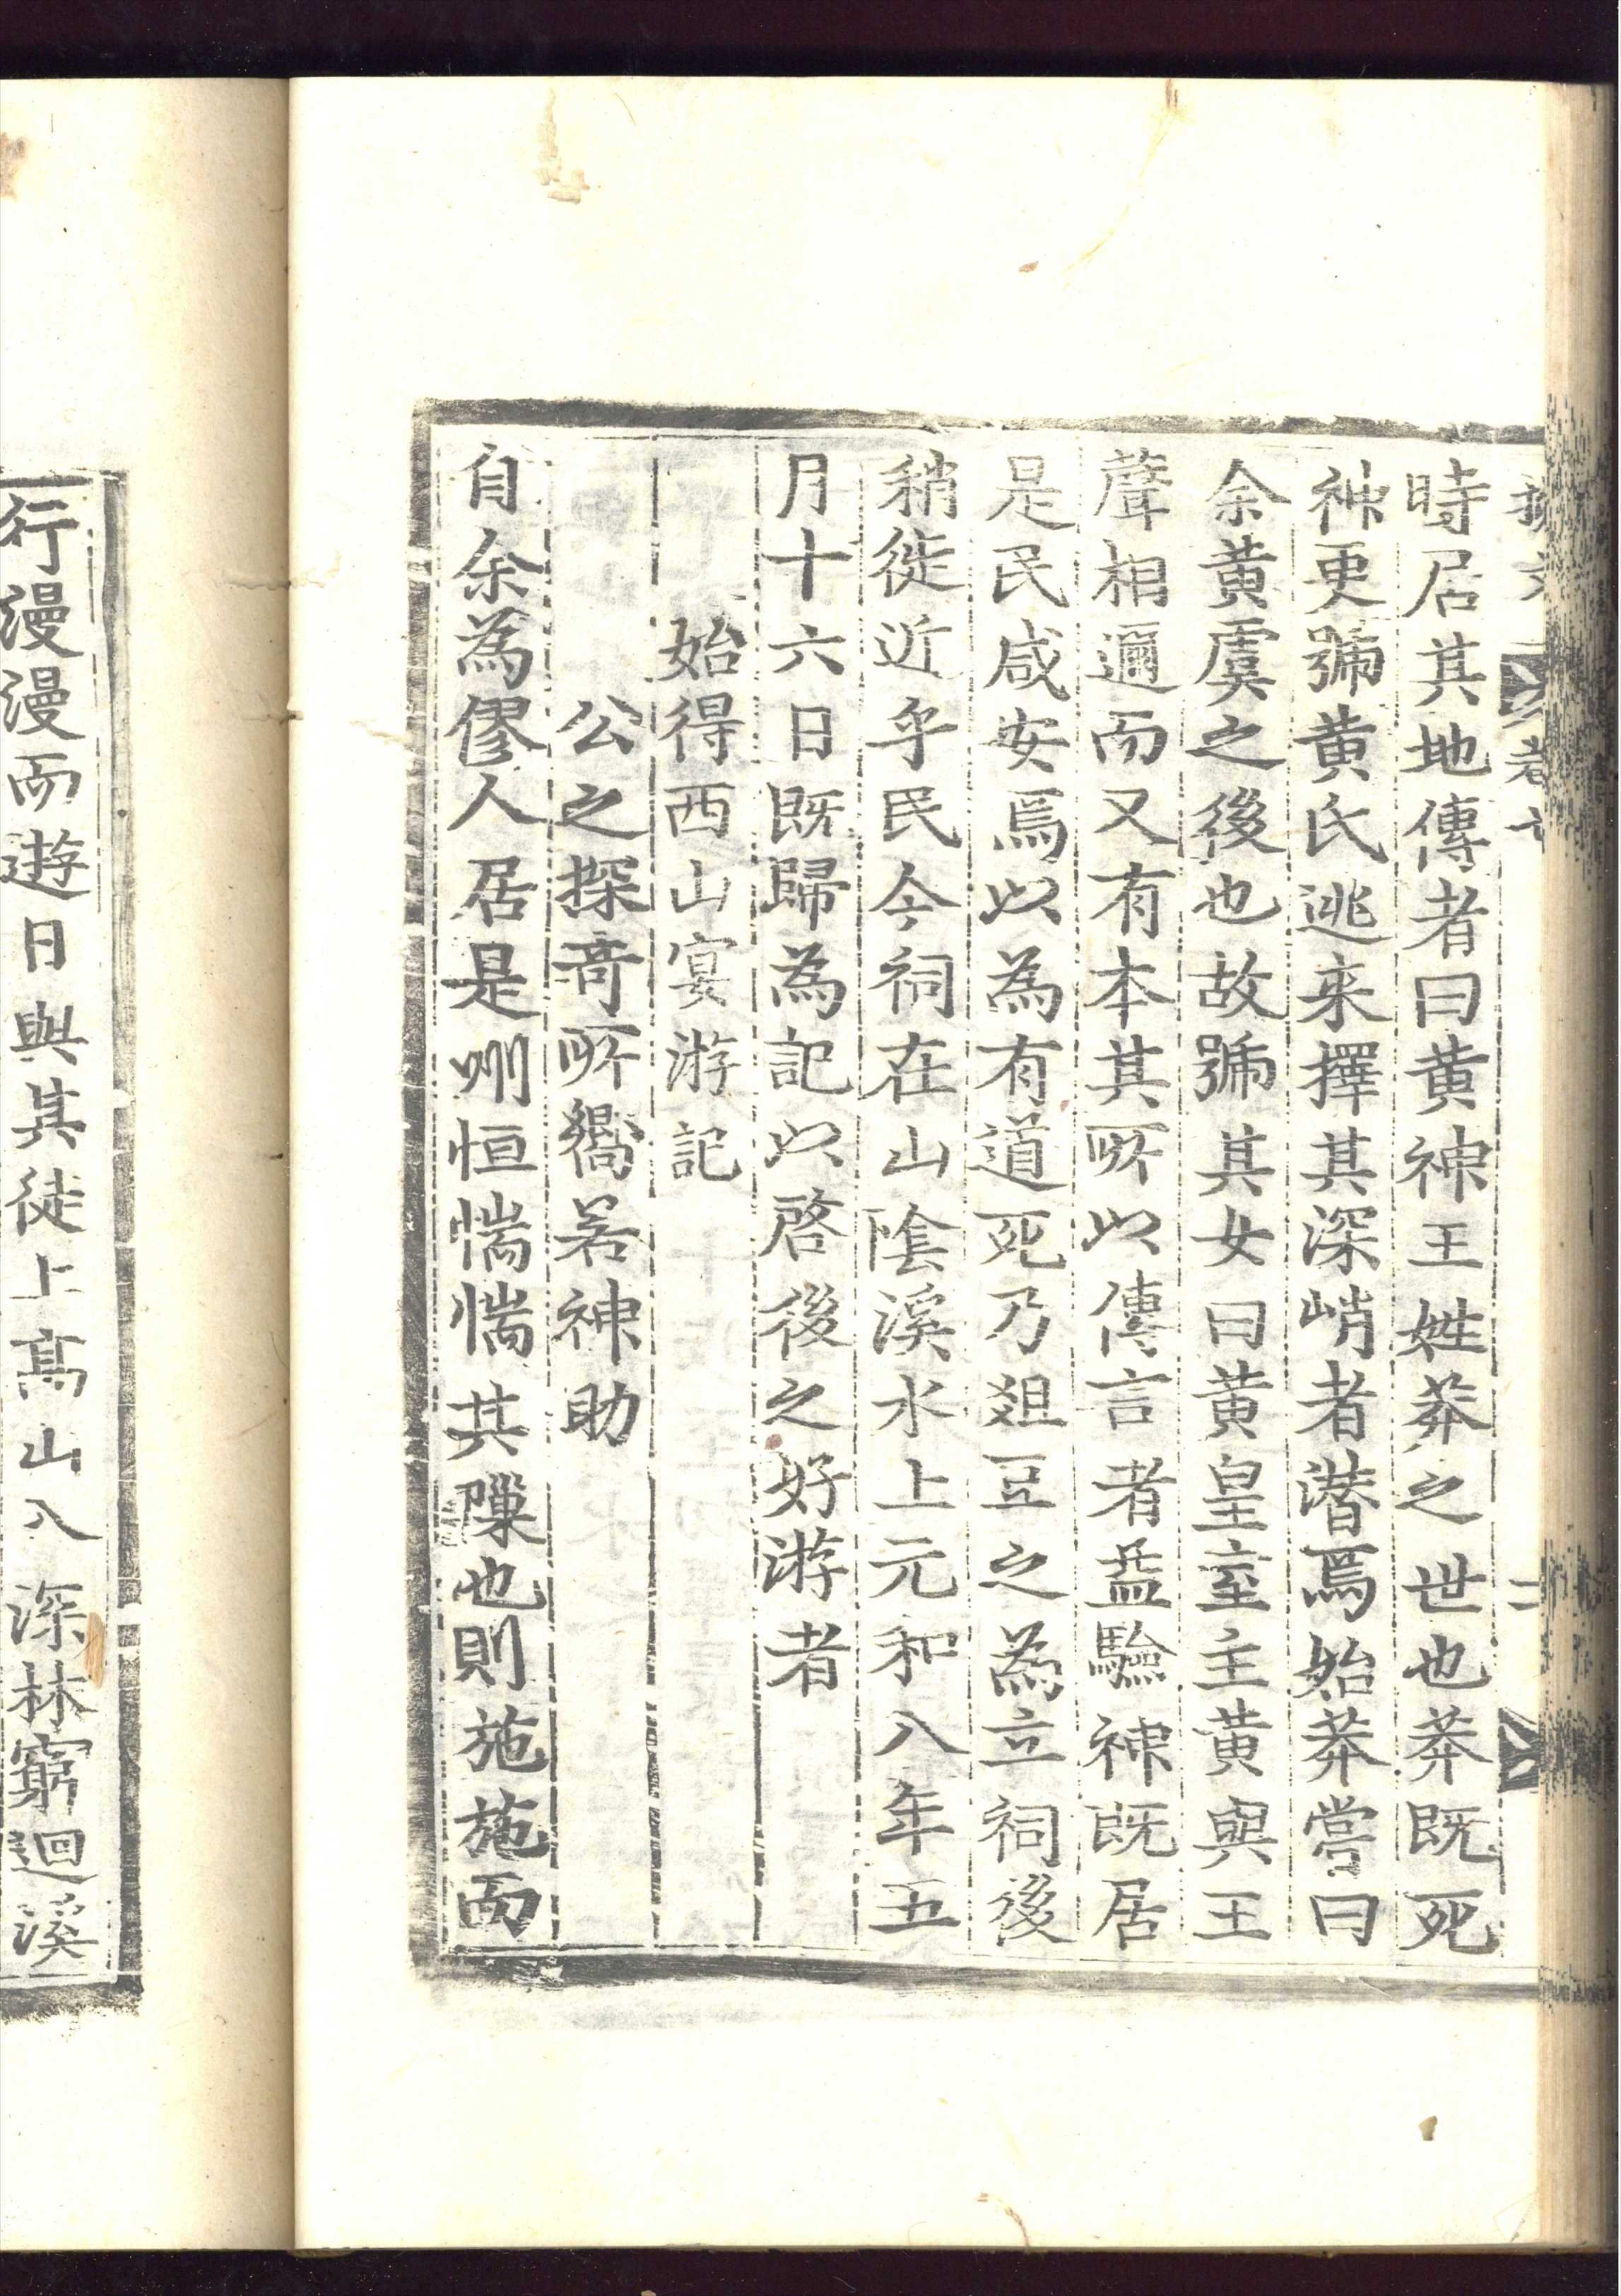 時居其地傳者曰黃神王姓莽之世也莽既死
神更號黃氏逃来擇其深峭者潜焉始莽嘗曰
余黃虞之後也故號其女曰黃皇室主黃與王
聲相邇而又有本其所以傳言者益驗神既居
是民咸安焉以為有道死乃爼豆之為立祠後
稍徙近乎民今祠在山陰溪水上元和八年五
月十六日既歸為記以啓後之好游者
始得西山宴游記
公之探奇所嚮若神助
自余為僇人居是州恒惴惴其隟也則施施而
行漫漫而遊日與其徒上高山入深林窮迴溪